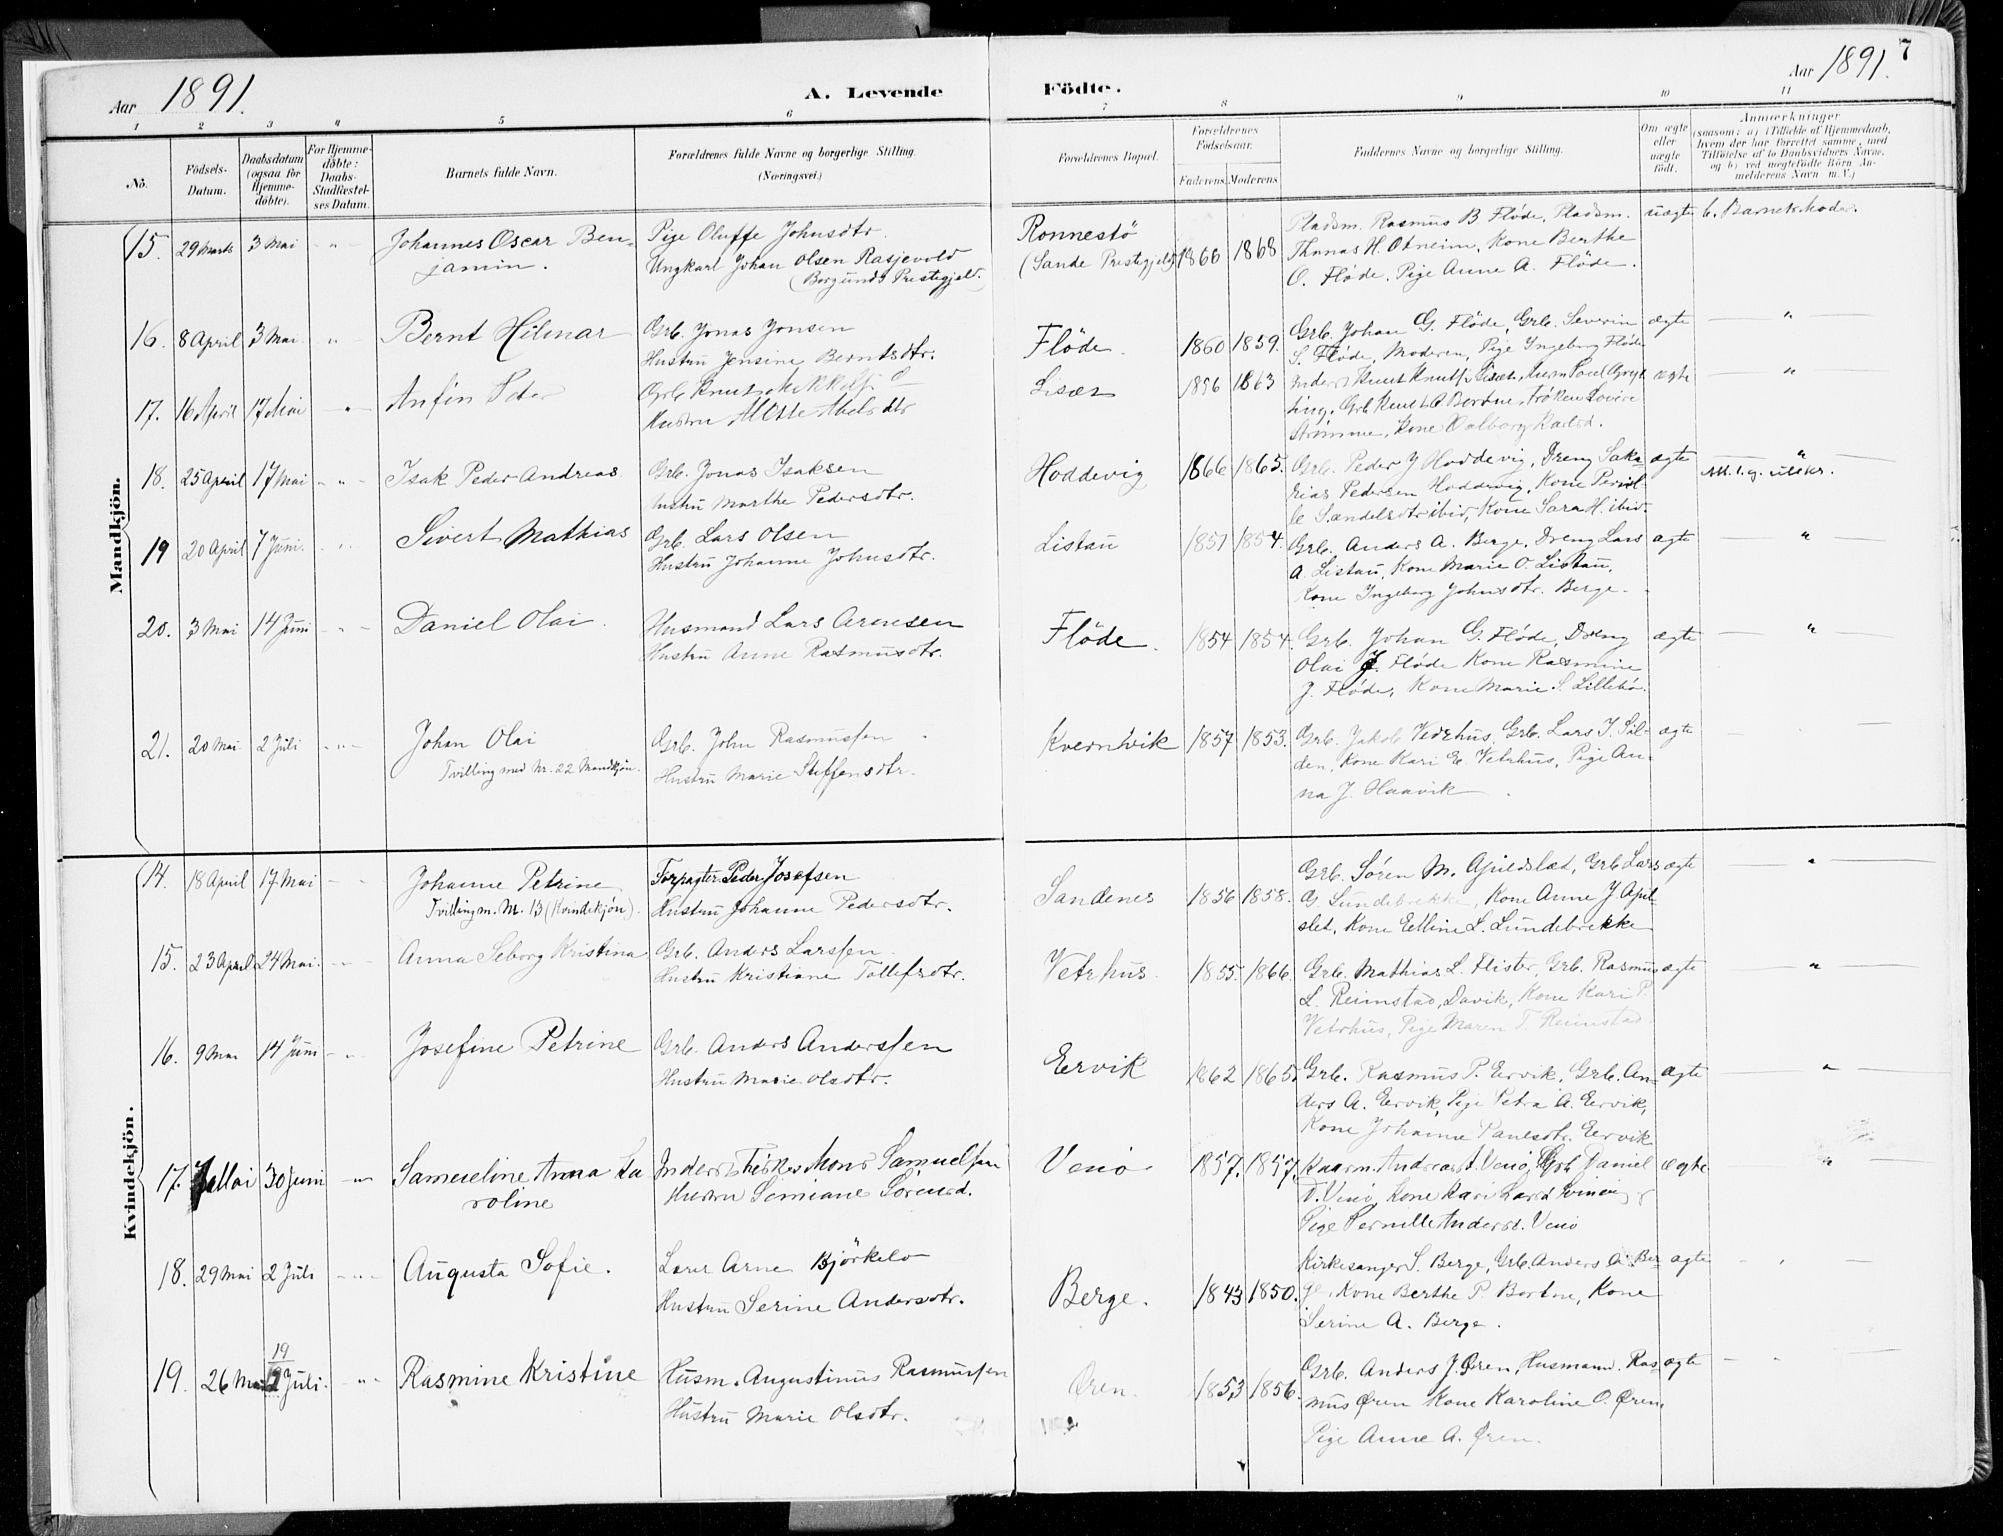 Aar 1891.
A. Levende Födte.
Aar 1891. 7
1 2 3 4 5 6 7 8 9 10 11
No.
Födsels-Datum.
Daabsdatum (ogsaa for Hjemme-döbte).
For Hjemme-döbte: Daabs-Stadfæstel-ses Datum.
Barnets fulde Navn.
Forældrenes fulde Navne og borgerlige Stilling. (Næringsvei.)
Forældrenes Bopæl.
Forældrenes Födselsaar.
Faderens. Moderens.
Faddernes Navne og borgerlige Stilling.
Om ægte eller uægte födt.
Anmærkninger (saasom: a) i Tilfælde af Hjemmedaab, hvem der har forrettet samme, med Tilföielse af to Daabsvidners Navne, og b) ved uægtefödte Börn Anmelderens Navn m. V.)
Mandkjön.
15. 29 Marts 3 Mai - " - Johannes Oscar Ben-
jamin.
Pige Oluffe Johnsdtr.
Ungkarl Johan Olsen Rasjevold
(Borgunds Prestegjeld.)
Ronnestö
(Sande Prestegjeld) 1866 1868
Pladsm. Rasmus B Flöde, Pladsm.
Thomas H. Otneim, Kone Berthe
O. Flöde, Pige Anne A. Flöde.
uægte b. Barnets Moder.
16. 8 April 3 Mai " Bernt Hilmar
Grb. Jonas Jonsen
Hustru Jensine Berntsdtr.
Flöde. 1860 1859.
Grb. Johan G. Flöde, Grb. Severin
S. Flöde, Moderen, Pige Ingeborg Flöde
ægte "
17. 16 April 17 Mai - " Anfin Peder
Grb Knut
Hustru Abelsdtr
Lisæt 1856 1863
Kone Valborg
ægte "
18. 25 April 17 Mai - " - Isak Peder Andreas
Grb. Jonas Isaksen
Hustru Marthe Pedersdtr.
Hoddevig 1866 1865.
Grb. Peder J Hoddevig, Dreng Saka-
rias Pedersen Hoddevig, Kone Pernil-
le Sandelsdtr ibid, Kone Sara H. ibid.
ægte "
19 20 April 7 Juni. - " - Sivert Mathias
Grb. Lars Olsen
Hustru Johanne Johnsdtr.
Listau 1851 1854.
Grb. Anders A. Berge, Dreng Lars
A. Listau, Kone Marie O. Listau,
Kone Ingeborg Johnsdtr. Berge.
ægte "
20. 3 Mai 14 Juni - " - Daniel Olai.
Husmand Lars Arensen
Hustru Anne Rasmusdtr.
Flöde. 1854 1854.
Grb. Johan G. Flöde, Dreng
Olai J. Flöde Kone Rasmine
J. Flöde, Kone Marie S. Lillebö.
ægte "
21. 20 Mai 2 Juli - " - Johan Olai
Tvilling med Nr. 22 Mandkjön.
Grb. John Rasmussen
Hustru Marie Steffensdtr.
Kvernhvik 1857 1853.
Grb. Jakob Vetrhus, Grb. Lars I. Sil-
den, Kone Kari E. Vetrhus, Pige An-
na J. Haavik
ægte
Kvindekjön.
14. 18 April 17 Mai - - Johanne Petrine
Tvilling m. Nr. 13 (Kvindekjön).
Forpagter Peder Josefsen
Hustru Johanne Pedersdtr.
Sandenes 1856 1858.
Grb. Sören M. Apildslad, Grb Lars
G. Lundebrekke, Kone Anne J Apil-
slet, Kone Elline L. Lundebrekke
ægte "
15. 23 April 24 Mai. - - Anna Seborg Kristina
Grb. Anders Larssen
Hustru Kristiane Tollefsdtr.
Vetrhus. 1855. 1866.
Grb. Mathias L. Flister, Grb. Rasmus
L. Reimstad, Davik, Kone Kari P.
Vetrhus, Pige Maren T. Reimstad
ægte "
16. 9 Mai 14 Juni - " Josefine Petrine
Grb. Anders Anderssen
Hustru Marie Olsdtr.
Eervik 1862 1865.
Grb. Rasmus P. Eervik, Grb. An-
ders A. Eervik, Pige Petra A. Eervik,
Kone Johanne Paulsdtr. Eervik
ægte "
17. Mai 30 Juni " Samueline Anna Ka
roline
Inderst Fisker Mons Samuelsen
Hustru Simiane Sörensd.
Venö 1857. 1857.
Kaarm. Andreas A. Venö, Grb Daniel
D. Venö, Kone Kari Larsd
Pige Pernille Andersd. Venö
ægte "
18. 29 Mai 2 Juli - " - Augusta Sofie.
Lærer Arne Björkelo
Hustru Serine Andersdtr.
Berge. 1843 1850.
Kirkesanger S. Berge, Grb. Anders A. Ber-
ge, Kone Berthe P. Bortne, Kone
Serine A. Berge.
ægte
19. 26 Mai 19 Juli. - " - Rasmine Kristine
Husm. Augustinus Rasmussen
Hustru Marie Olsdtr.
Øren. 1853 1856.
Grb. Anders J. Øren, Husmand. Ras-
mus Øren Kone Karoline O. Øren,
Pige Anne A. Øren.
ægte